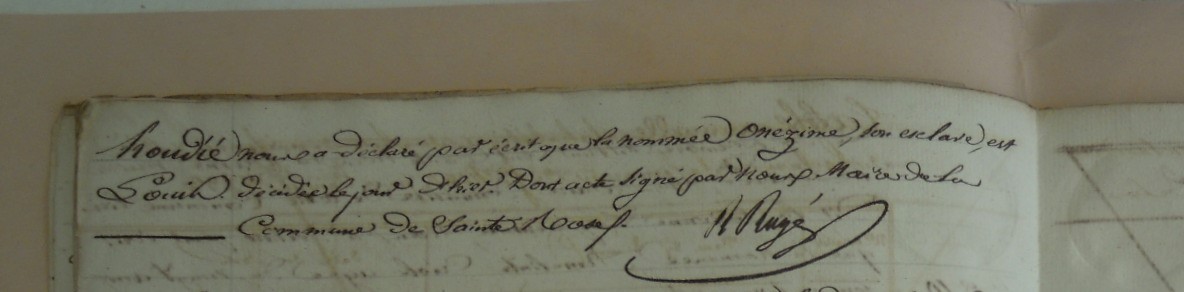 houdié nous a déclaré par écrit que la nommée Onézime, son esclave, est
Louis. décédée le jour d'hier. Dont acte signé par Nous Maire de la
Commune de Sainte Rose.
R Rugé